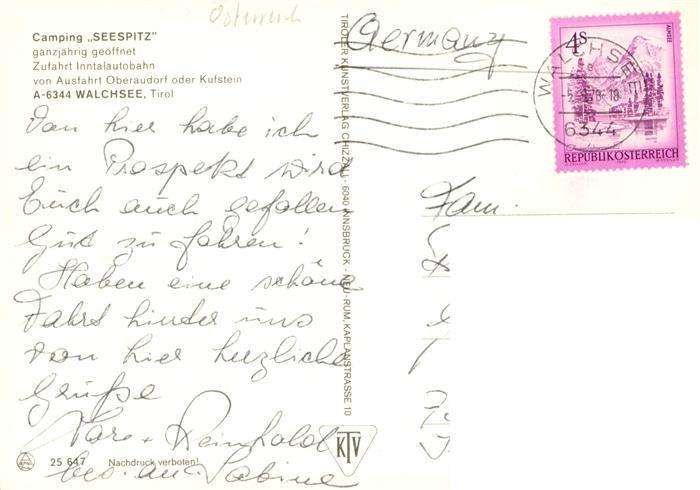 Österreich
Camping „SEESPITZ"
ganzjährig geöffnet
Zufahrt Inntalautobahn
von Ausfahrt Oberaudorf oder Kufstein
A-6344 WALCHSEE, Tirol
Von hier habe ich
ein Prospekt wird
Euch auch gefallen
Gut zu fahren!
Haben eine schöne
Fahrt hinter uns
Von hier herzliche
Grüße
Reinhold
bes. an Sabine
25 647 Nachdruck verboten!
TIROLER KUNSTVERLAG CHIZZALI - 6040 INNSBRUCK - NEU-RUM, KAPLANSTRASSE 10
KTV
Germany
4S
ALMSEE
REPUBLIK ÖSTERREICH
WALCHSEE
6344
Fam.